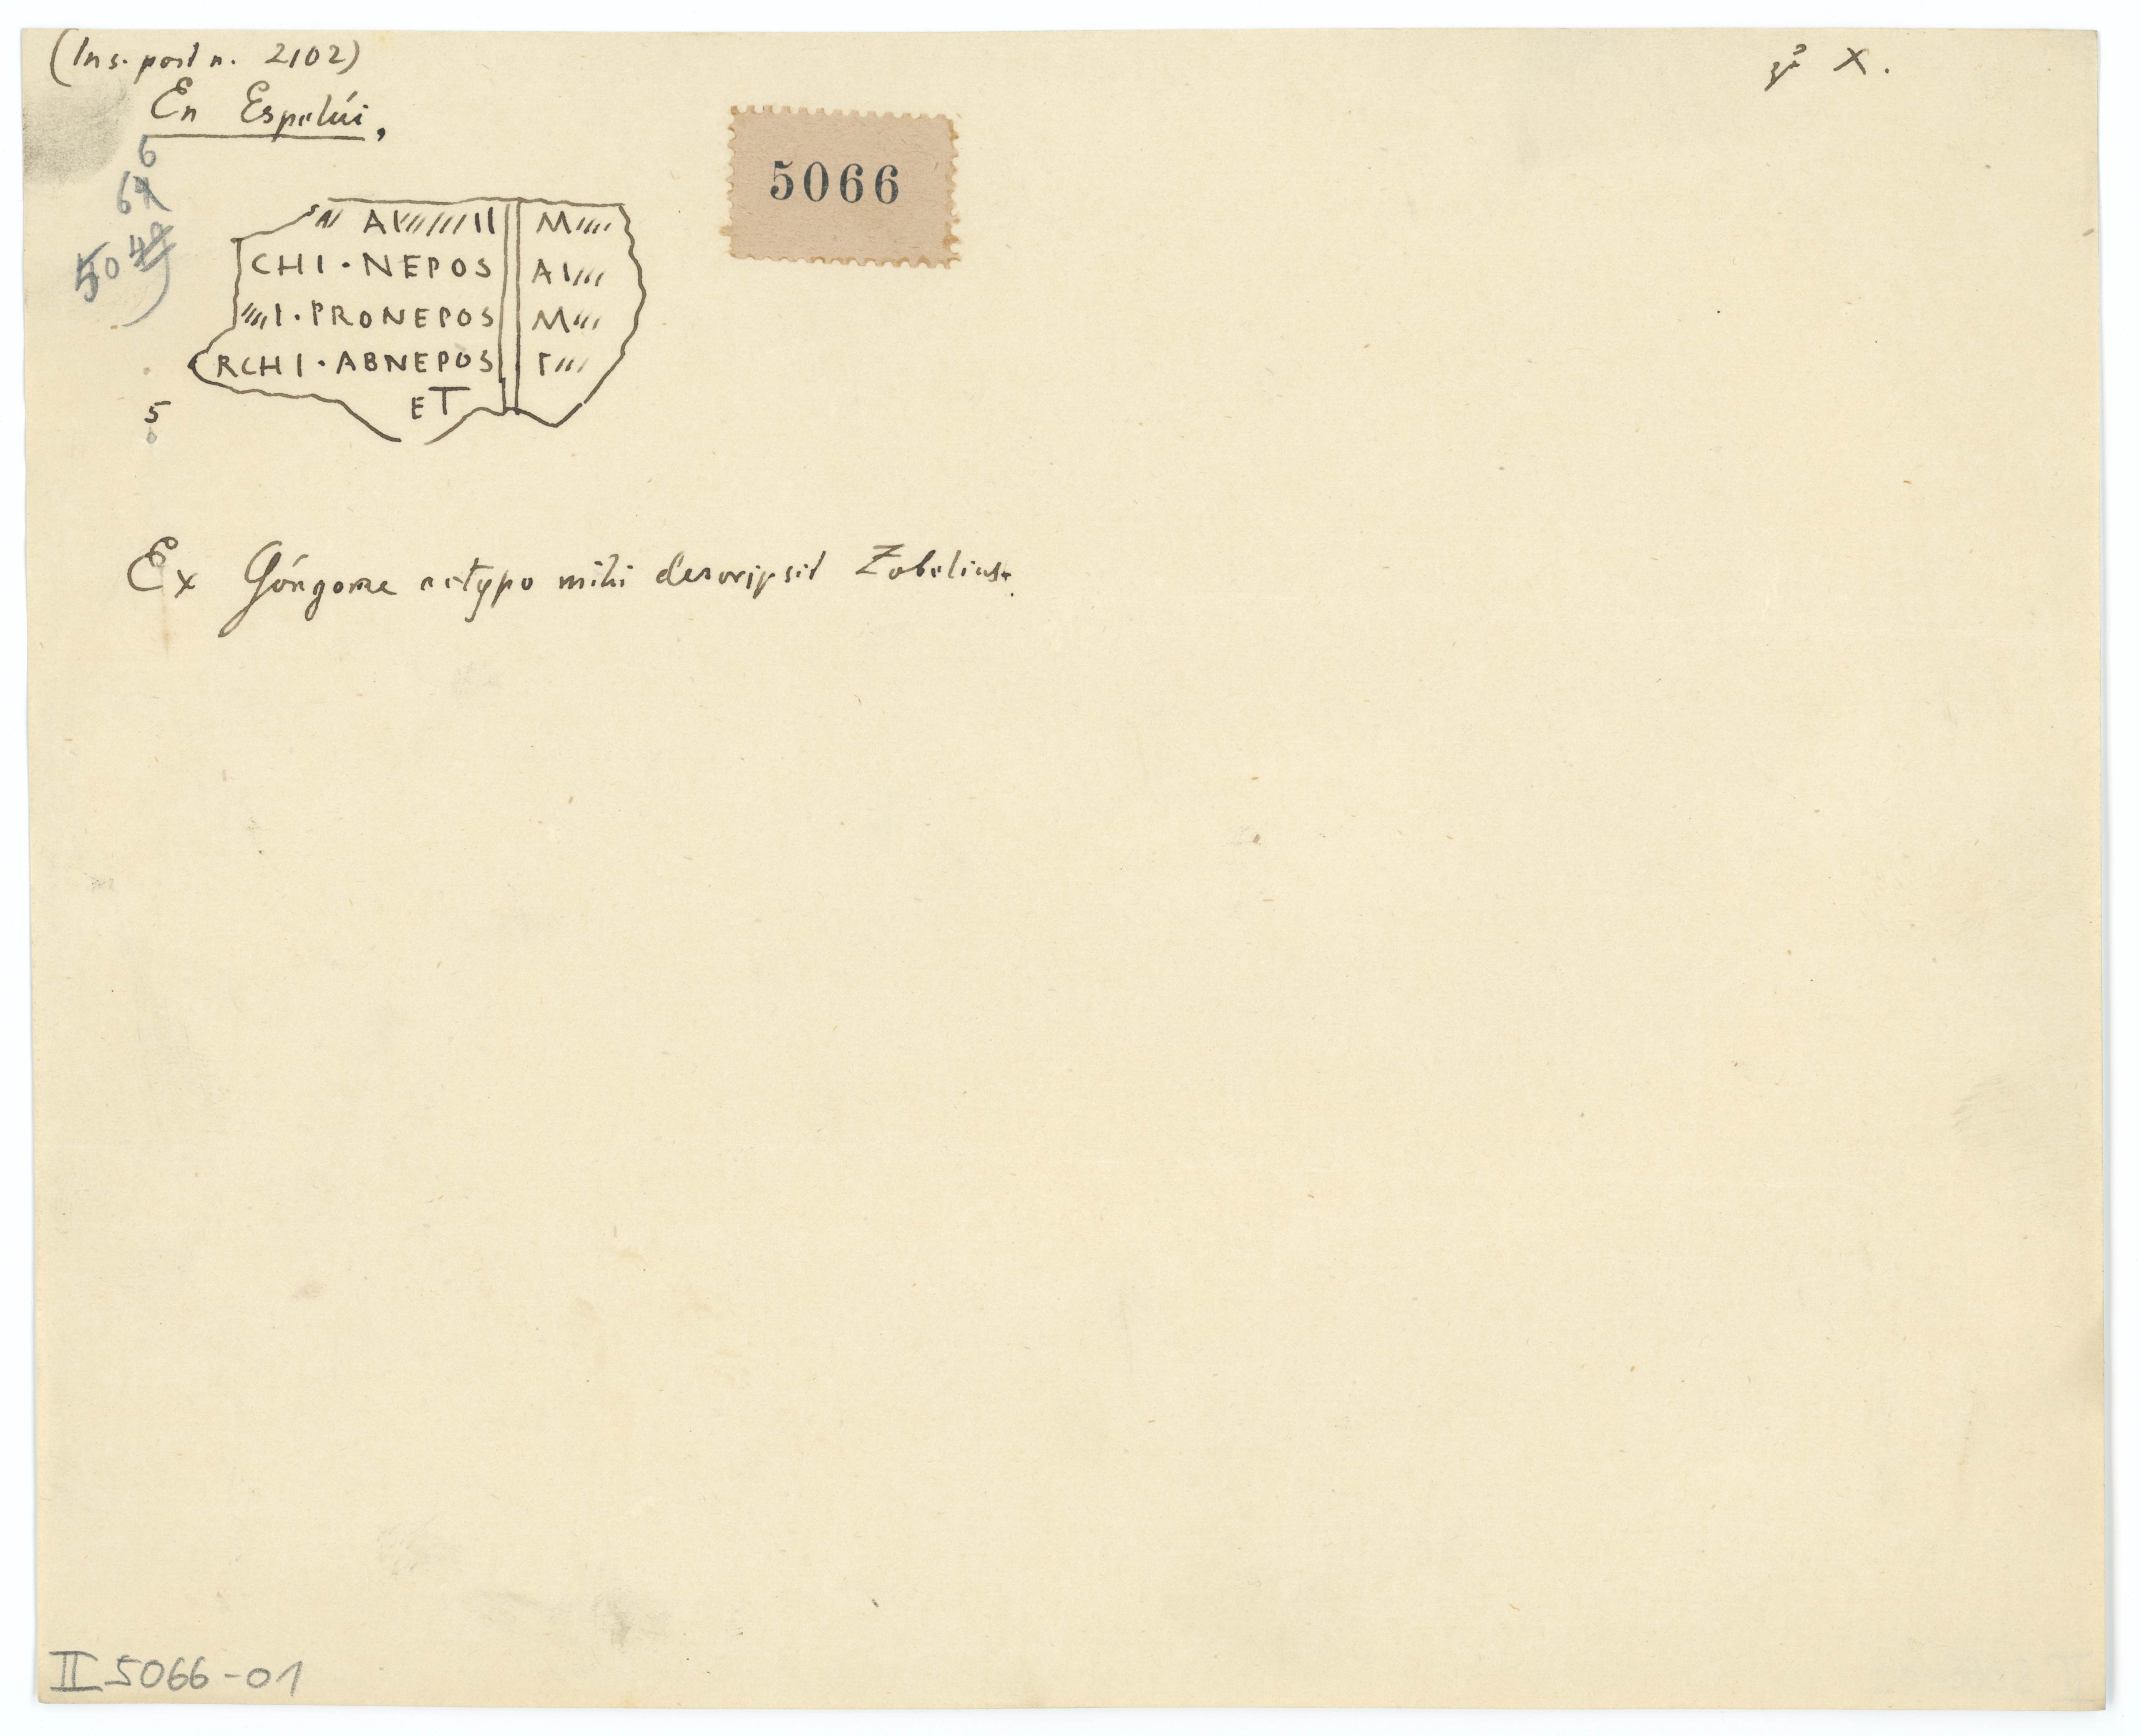 (Ins. post n. 2102)
X.
En Espelúi,
5066
A I I M
CHI · NEPOS A I
I · PRONEPOS M
RCHI · ABNEPOS Γ
5 ET
Ex Góngorae ectypo mihi descripsit Zobelius.
II 5066-01